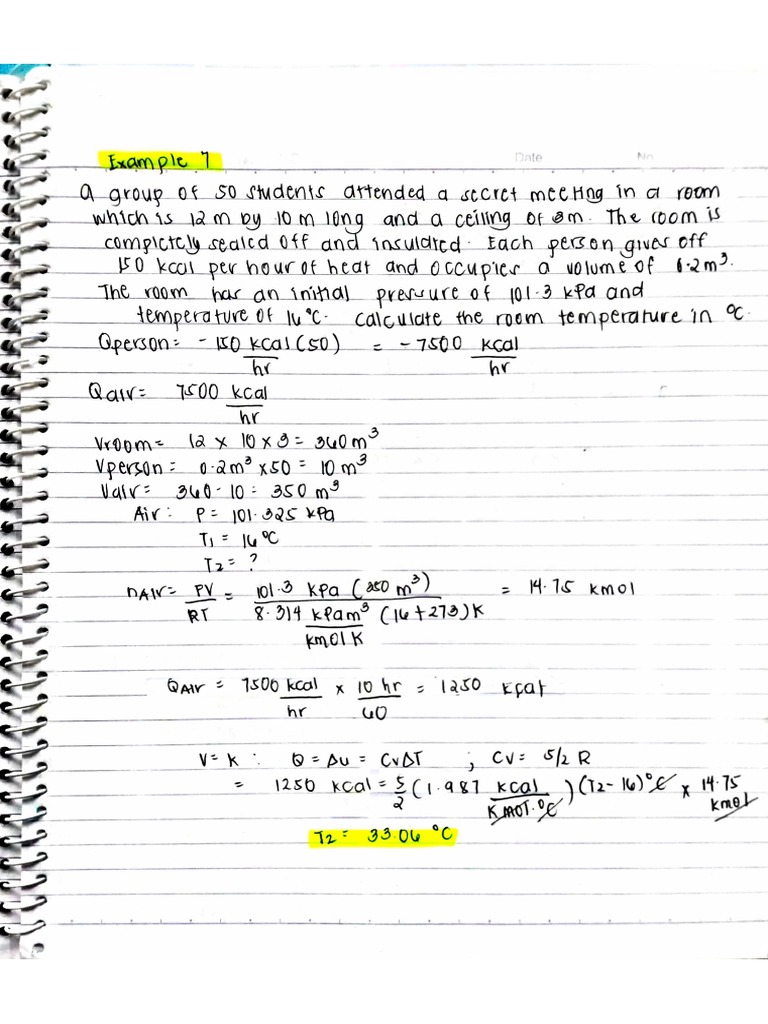 Example 7
Date No
A group of 50 students attended a secret meeting in a room
which is 12 m by 10 m long and a ceiling of 3m. The room is
completely sealed off and insulated. Each person gives off
150 kcal per hour of heat and occupies a volume of 0.2 m³.
The room has an initial pressure of 101.3 kPa and
temperature of 16°C. calculate the room temperature in °C
Qperson = -150 kcal/hr (50) = -7500 kcal/hr
Qair = 7500 kcal/hr
Vroom = 12 x 10 x 3 = 360 m³
Vperson = 0.2m³ x 50 = 10 m³
Vair = 360 - 10 = 350 m³
Air: P = 101.325 kPa
T1 = 16°C
T2 = ?
nAIR = PV/RT = 101.3 kPa (350 m³) / 8.314 kPam³/kmol K (16+273)K = 14.75 kmol
QAir = 7500 kcal/hr x 10 hr/60 = 1250 kcal
V = K : Q = ΔU = CvΔT ; Cv = 5/2 R
= 1250 kcal = 5/2 (1.987 kcal/Kmol.°C) (T2-16)°C x 14.75 kmol
T2 = 33.06 °C